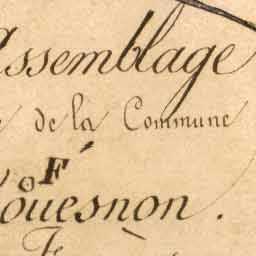 Assemblage
de la Commune
F
ouesnon.